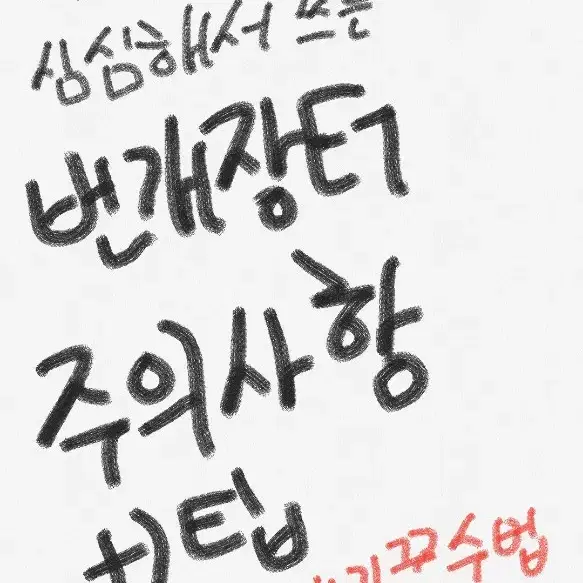 심심해서 쓰는
번개장터
주의사항
+)팁
꾸수법